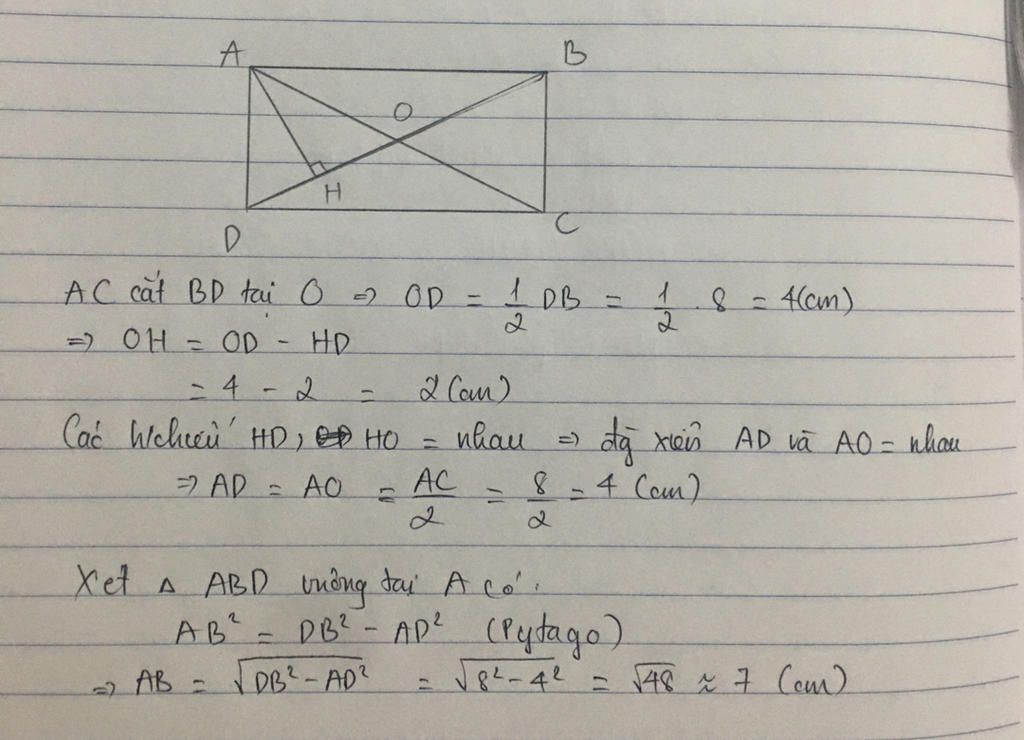 A
B
O
H
D
C
AC cắt BD tại O => OD = 1/2 DB = 1/2 . 8 = 4(cm)
=> OH = OD - HD
= 4 - 2 = 2 (cm)
Các h/chiếu HD, HO = nhau => đg xiên AD và AO = nhau
=> AD = AO = AC/2 = 8/2 = 4 (cm)
Xet △ ABD vuông tại A có.
AB² = DB² - AD² (Pytago)
=> AB = √(DB² - AD²) = √(8² - 4²) = √48 ≈ 7 (cm)